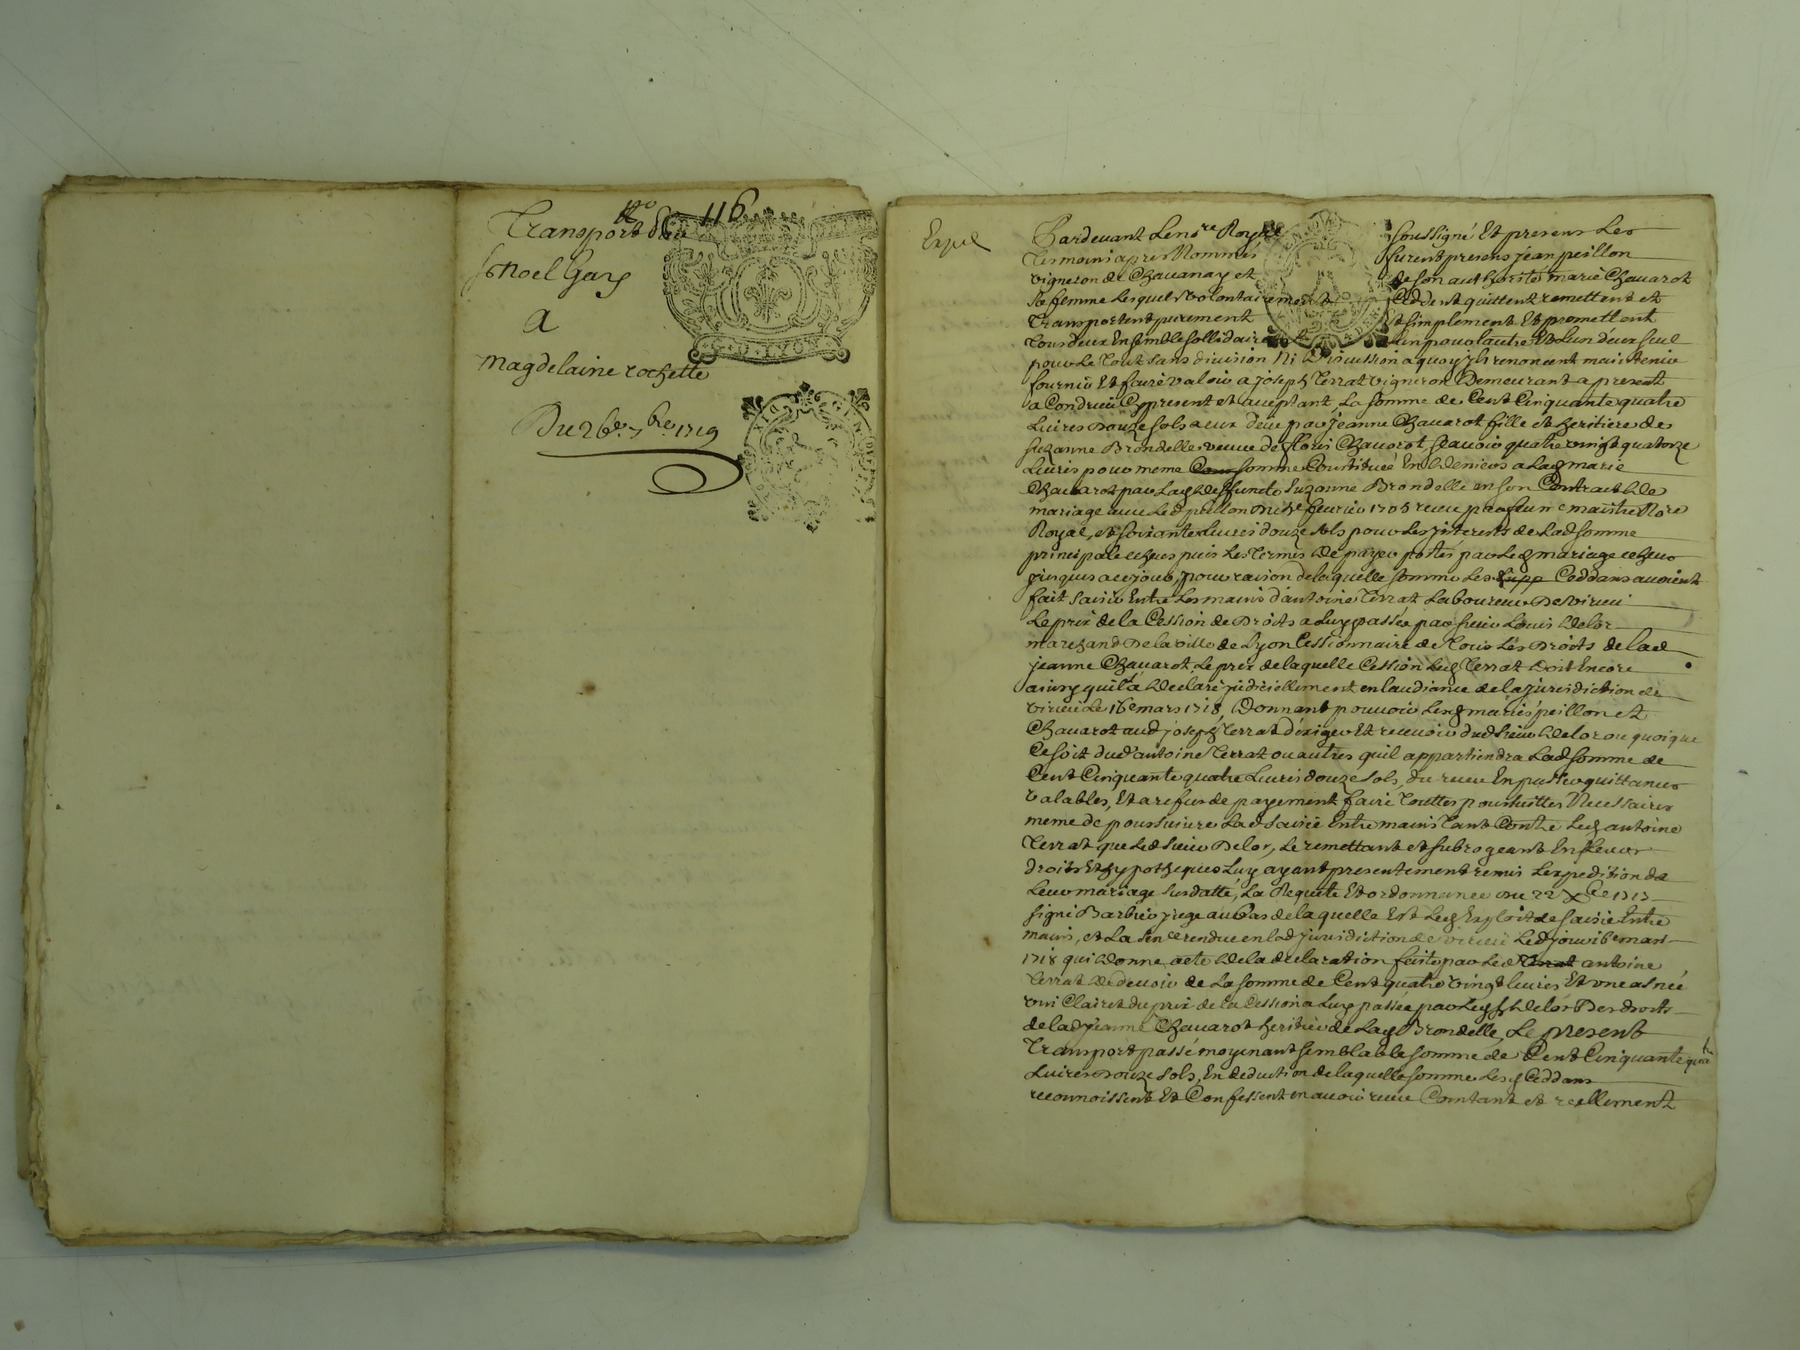 Nº 116
Transport du
sr noel Gary
A
Magdelaine rochette
Du 26e 7bre 1719
GE. LYON
Expé
Pardevant Le nre Royal soussigné Et presens Les
Tesmoins apres Nommés furent presens jean peillon
vigneron de Chauanay et de son authorité marie Chauarot
sa femme Lesquels volontairement Ceddent quittent remettent et
Transportent purement et simplement Et promettent
Tous deux Ensemble sollidairement Lun pour lautre Et Lun deux seul
pour Le Tout sans diuision Ni Discussion a quoy jls renoncent maintenir
fournir Et faire valoir a joseph Terrat vigneron Demeurant a present
a Condrieu Cy present et aceptant, La somme de Cent Cinquante quatre
Liures Douze sols a eux deüe par jeanne Chauarot fille et heritiere de
suzanne Brondelle veuve de floris Chauarot, scauoir quatre vingt quatorze
Liures pour meme somme Constituée En deniers a Lad marie
Chauarot par Lad deffuncte suzanne Brondelle en son Contract de
mariage auec Led peillon Du feurier 1705 receu par feu me maistre Nore
Royal, et soixante Liures douze sols pour Les jnterests de Lad somme
principale escheus puis Les Termes de payer portés par Led mariage escheus
jusques a ce jour, pour raison de laquelle somme Les Ceddans auoient
fait saisir Entre Les mains d'antoine Terrat Laboureur De virieu
Le prix de la Cession de Droits a Luy passée par sieur Louis Delor
marchand De la ville de Lyon Cessionnaire de Tous Les Droits de lad
jeanne Chauarot, Le prix de laquelle Cession Led Terrat Doit Encore
ainsy quil a Declaré judiciellement en laudiance de la jurisdiction de
virieu Le 16e mars 1718, Donnant pouuoir Lesd mariés peillon et
Chauarot aud joseph Terrat d'exiger Et receuoir dud sieur Delor ou quoique
Ce soit dud antoine Terrat ou autres quil appartiendra Lad somme de
Cent Cinquante quatre Liures douze sols, du receu En passer quittances
valables, Et a refus de payement faire Touttes poursuittes Necessaires
meme de poursuiure Lad saisie Entre mains Tant Contre Led antoine
Terrat que Led sieur Delor, Le remettant et subrogeant En Leur
droits Et hypotheques Luy ayant presentement remis Lexpedition de
Leur mariage susdatté, La Requete Et ordonnance du 22 Xbre 1717
signé Barbier juge au bas de laquelle Est Led Exploit de saisie Entre
mains, et La sence rendue en lad jurisdiction de virieu Led jour 16e mars
1718 qui donne acte de la declaration faite par Led antoine
Terrat de deuoir de La somme de Cent quatre vingt liures Et vne asnée
vin Clairet du prix de la Cession a Luy passée par Led sr Delor Des droits
de lad jeanne Chauarot heritiere de Lad Brondelle, Le present
Transport passé moyenant semblable somme de Cent Cinquante quatre
Liures Douze sols, En deduction de laquelle somme Lesd Ceddans
reconnoissent Et Confessent en auoir receu Comtant et reellement